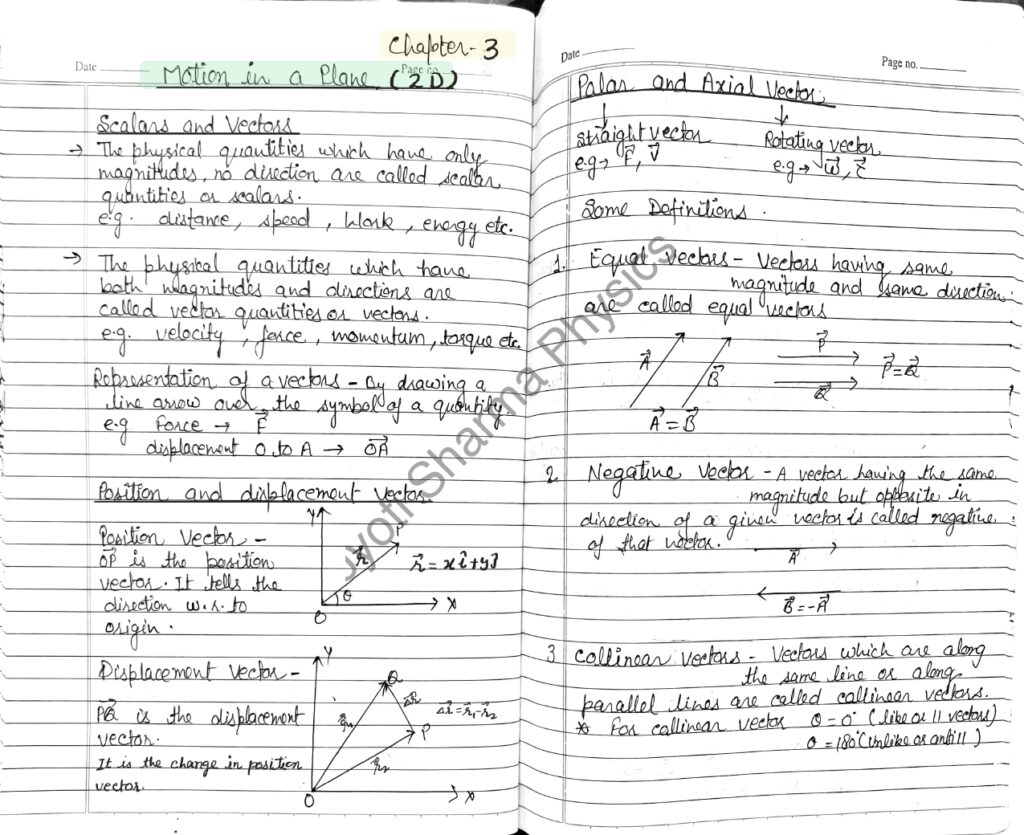 Chapter-3
Date
Page no.
Motion in a Plane (2D)
Scalars and Vectors
→ The physical quantities which have only
magnitudes, no direction are called scalar
quantities or scalars.
e.g. distance, speed, Work, energy etc.
→ The physical quantities which have
both magnitudes and directions are
called vector quantities or vectors.
e.g. velocity, force, momentum, torque etc.
Representation of a vectors - By drawing a
line arrow over the symbol of a quantity.
e.g Force → F⃗
displacement O to A → OA⃗
Position and displacement Vector
Position Vector -
OP⃗ is the position
vector. It tells the
direction w.r.to
origin.
Y
P
r⃗
r⃗ = xî+yĵ
θ
X
O
Displacement Vector -
PQ⃗ is the displacement
vector.
It is the change in position
vector.
Y
Q
Δr⃗
Δr⃗ = r⃗₁-r⃗₂
r⃗₁
P
r⃗₂
O
X
Date
Page no.
Polar and Axial Vector
↓ ↓
Straight vector Rotating vector
e.g → F⃗, V⃗ e.g → ω⃗, τ⃗
Some Definitions.
1. Equal Vectors - Vectors having same
magnitude and same direction.
are called equal vectors
A⃗
B⃗
A⃗ = B⃗
P⃗
Q⃗
P⃗=Q⃗
2. Negative Vector - A vector having the same
magnitude but opposite in
direction of a given vector is called negative
of that vector.
A⃗
B⃗=-A⃗
3 Collinear Vectors - Vectors which are along
the same line or along
parallel lines are called collinear vectors.
* For collinear vector θ = 0° (like or || vectors)
θ = 180° (unlike or anti ||)
Jyoti Sharma Physics